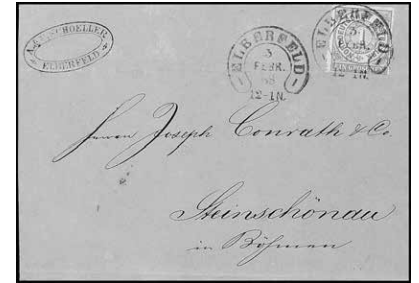 A. & E. SCHOELLER
ELBERFELD
ELBERFELD
3
FEBR.
68
12-1N.
ELBERFELD
3
FEBR.
12-1N.
Herren Joseph Conrath & Co.
Steinschönau
in Böhmen